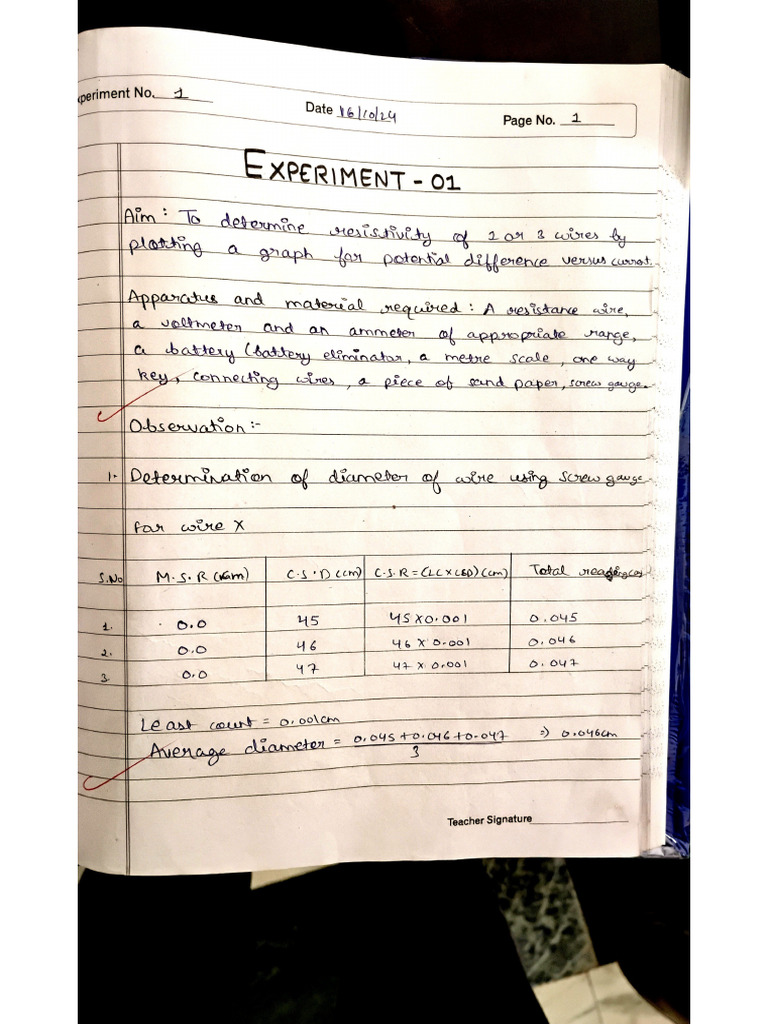 xperiment No. 1
Date 16/10/24
Page No. 1
EXPERIMENT - 01
Aim : To determine resistivity of 2 or 3 wires by
plotting a graph for potential difference versus current.
Apparatus and material required : A resistance wire,
a voltmeter and an ammeter of appropriate range,
a battery (battery eliminator, a metre scale, one way
key, connecting wires, a piece of sand paper, screw gauge.
Observation :-
1. Determination of diameter of wire using screw gauge
for wire X
S.No M.S.R C.S.D (cm) C.S.R = (LC X CSD) (cm) Total reading
1. 0.0 45 45 X 0.001 0.045
2. 0.0 46 46 X 0.001 0.046
3. 0.0 47 47 X 0.001 0.047
Least count = 0.001cm
Average diameter = 0.045 + 0.046 + 0.047 / 3 => 0.046cm
Teacher Signature